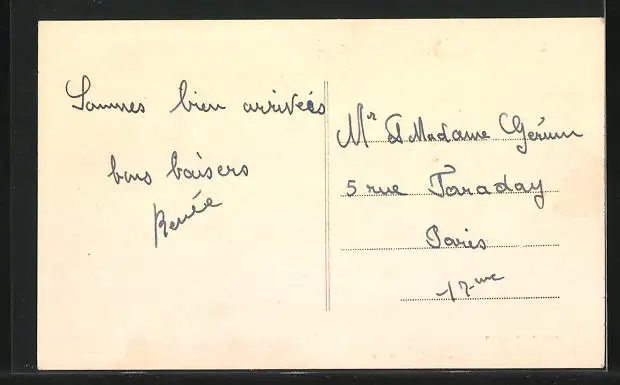 Sommes bien arrivées
bons baisers
Renée
Mr & Madame
5 rue Faraday
Paris
17me